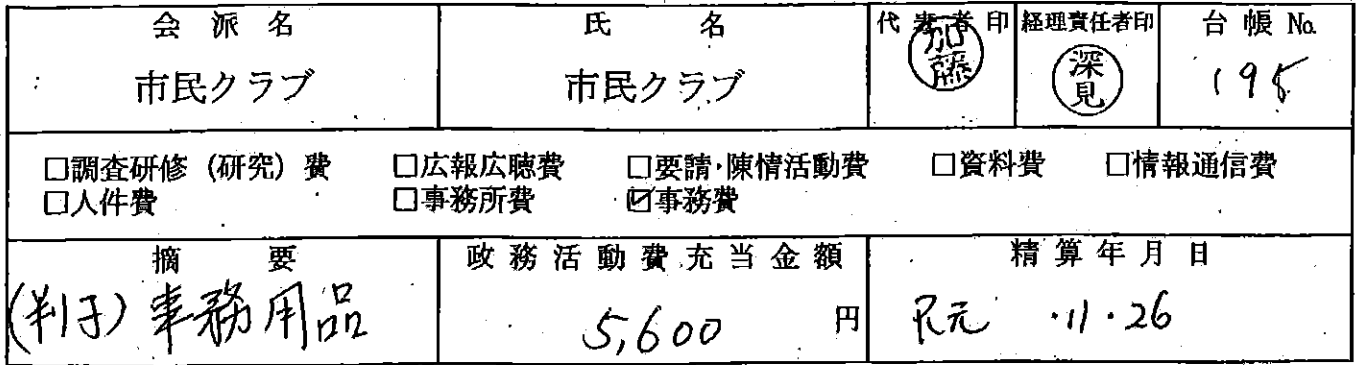 会派名 氏名 代表者印 経理責任者印 台帳No.
市民クラブ 市民クラブ 加藤 深見 198
□調査研修（研究）費 □広報広聴費 □要請・陳情活動費 □資料費 □情報通信費
□人件費 □事務所費 ☑事務費
摘要 政務活動費充当金額 精算年月日
(判子)事務用品 5,600 円 R元・11・26